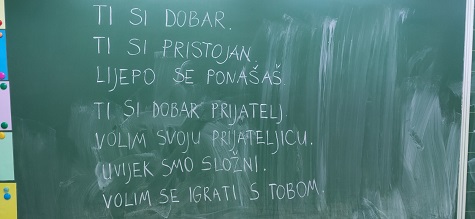 TI SI DOBAR.
TI SI PRISTOJAN.
LIJEPO SE PONAŠAŠ.
TI SI DOBAR PRIJATELJ.
VOLIM SVOJU PRIJATELJICU.
UVIJEK SMO SLOŽNI.
VOLIM SE IGRATI S TOBOM.